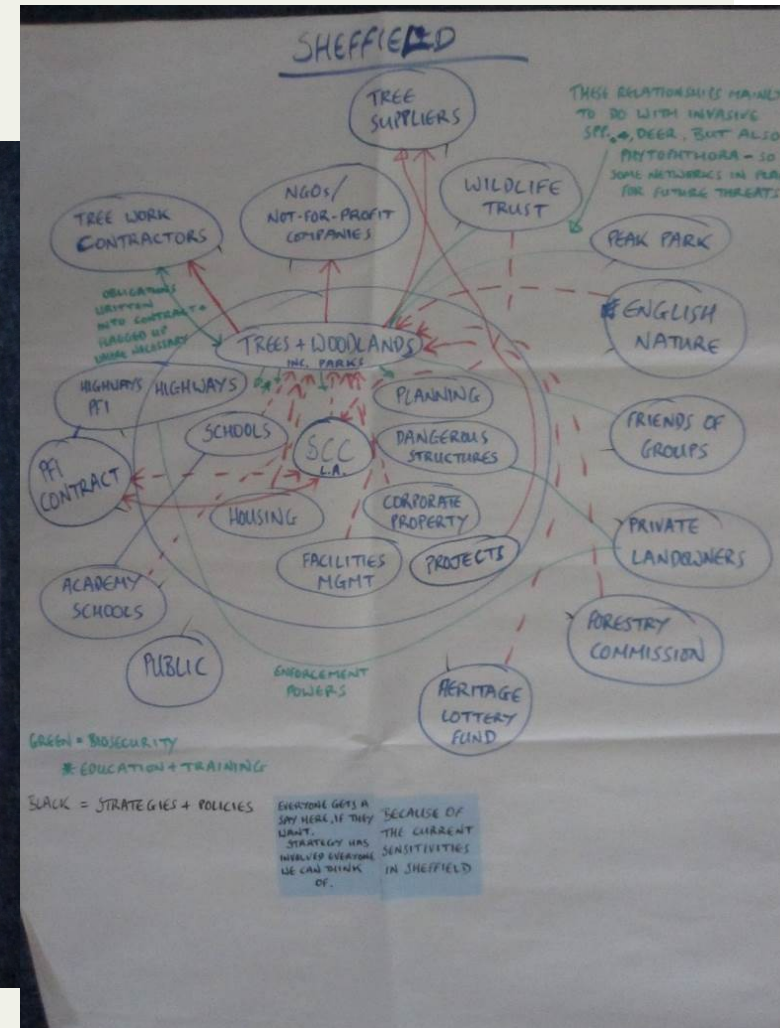 SHEFFIELD
TREE
SUPPLIERS
THESE RELATIONSHIPS MAINLY
TO DO WITH INVASIVE
SPP. DEER, BUT ALSO
PHYTOPHTHORA - SO
SOME NETWORKS IN
FOR FUTURE THREATS
TREE WORK
CONTRACTORS
NGOs/
NOT-FOR-PROFIT
COMPANIES
WILDLIFE
TRUST
PEAK PARK
OBLIGATIONS
WRITTEN
INTO CONTRACT +
FLAGGED UP
WHERE NECESSARY
TREES + WOODLANDS
INC. PARKS
ENGLISH
NATURE
HIGHWAYS
PFI
HIGHWAYS
PLANNING
SCHOOLS
SCC
L.A.
DANGEROUS
STRUCTURES
FRIENDS OF
GROUPS
PFI
CONTRACT
HOUSING
CORPORATE
PROPERTY
PRIVATE
LANDOWNERS
FACILITIES
MGMT
PROJECTS
ACADEMY
SCHOOLS
FORESTRY
COMMISSION
PUBLIC
ENFORCEMENT
POWERS
HERITAGE
LOTTERY
FUND
GREEN = BIOSECURITY
* EDUCATION + TRAINING
BLACK = STRATEGIES + POLICIES
EVERYONE GETS A
SAY HERE, IF THEY
WANT.
STRATEGY HAS
INVOLVED EVERYONE
WE CAN THINK
OF.
BECAUSE OF
THE CURRENT
SENSITIVITIES
IN SHEFFIELD